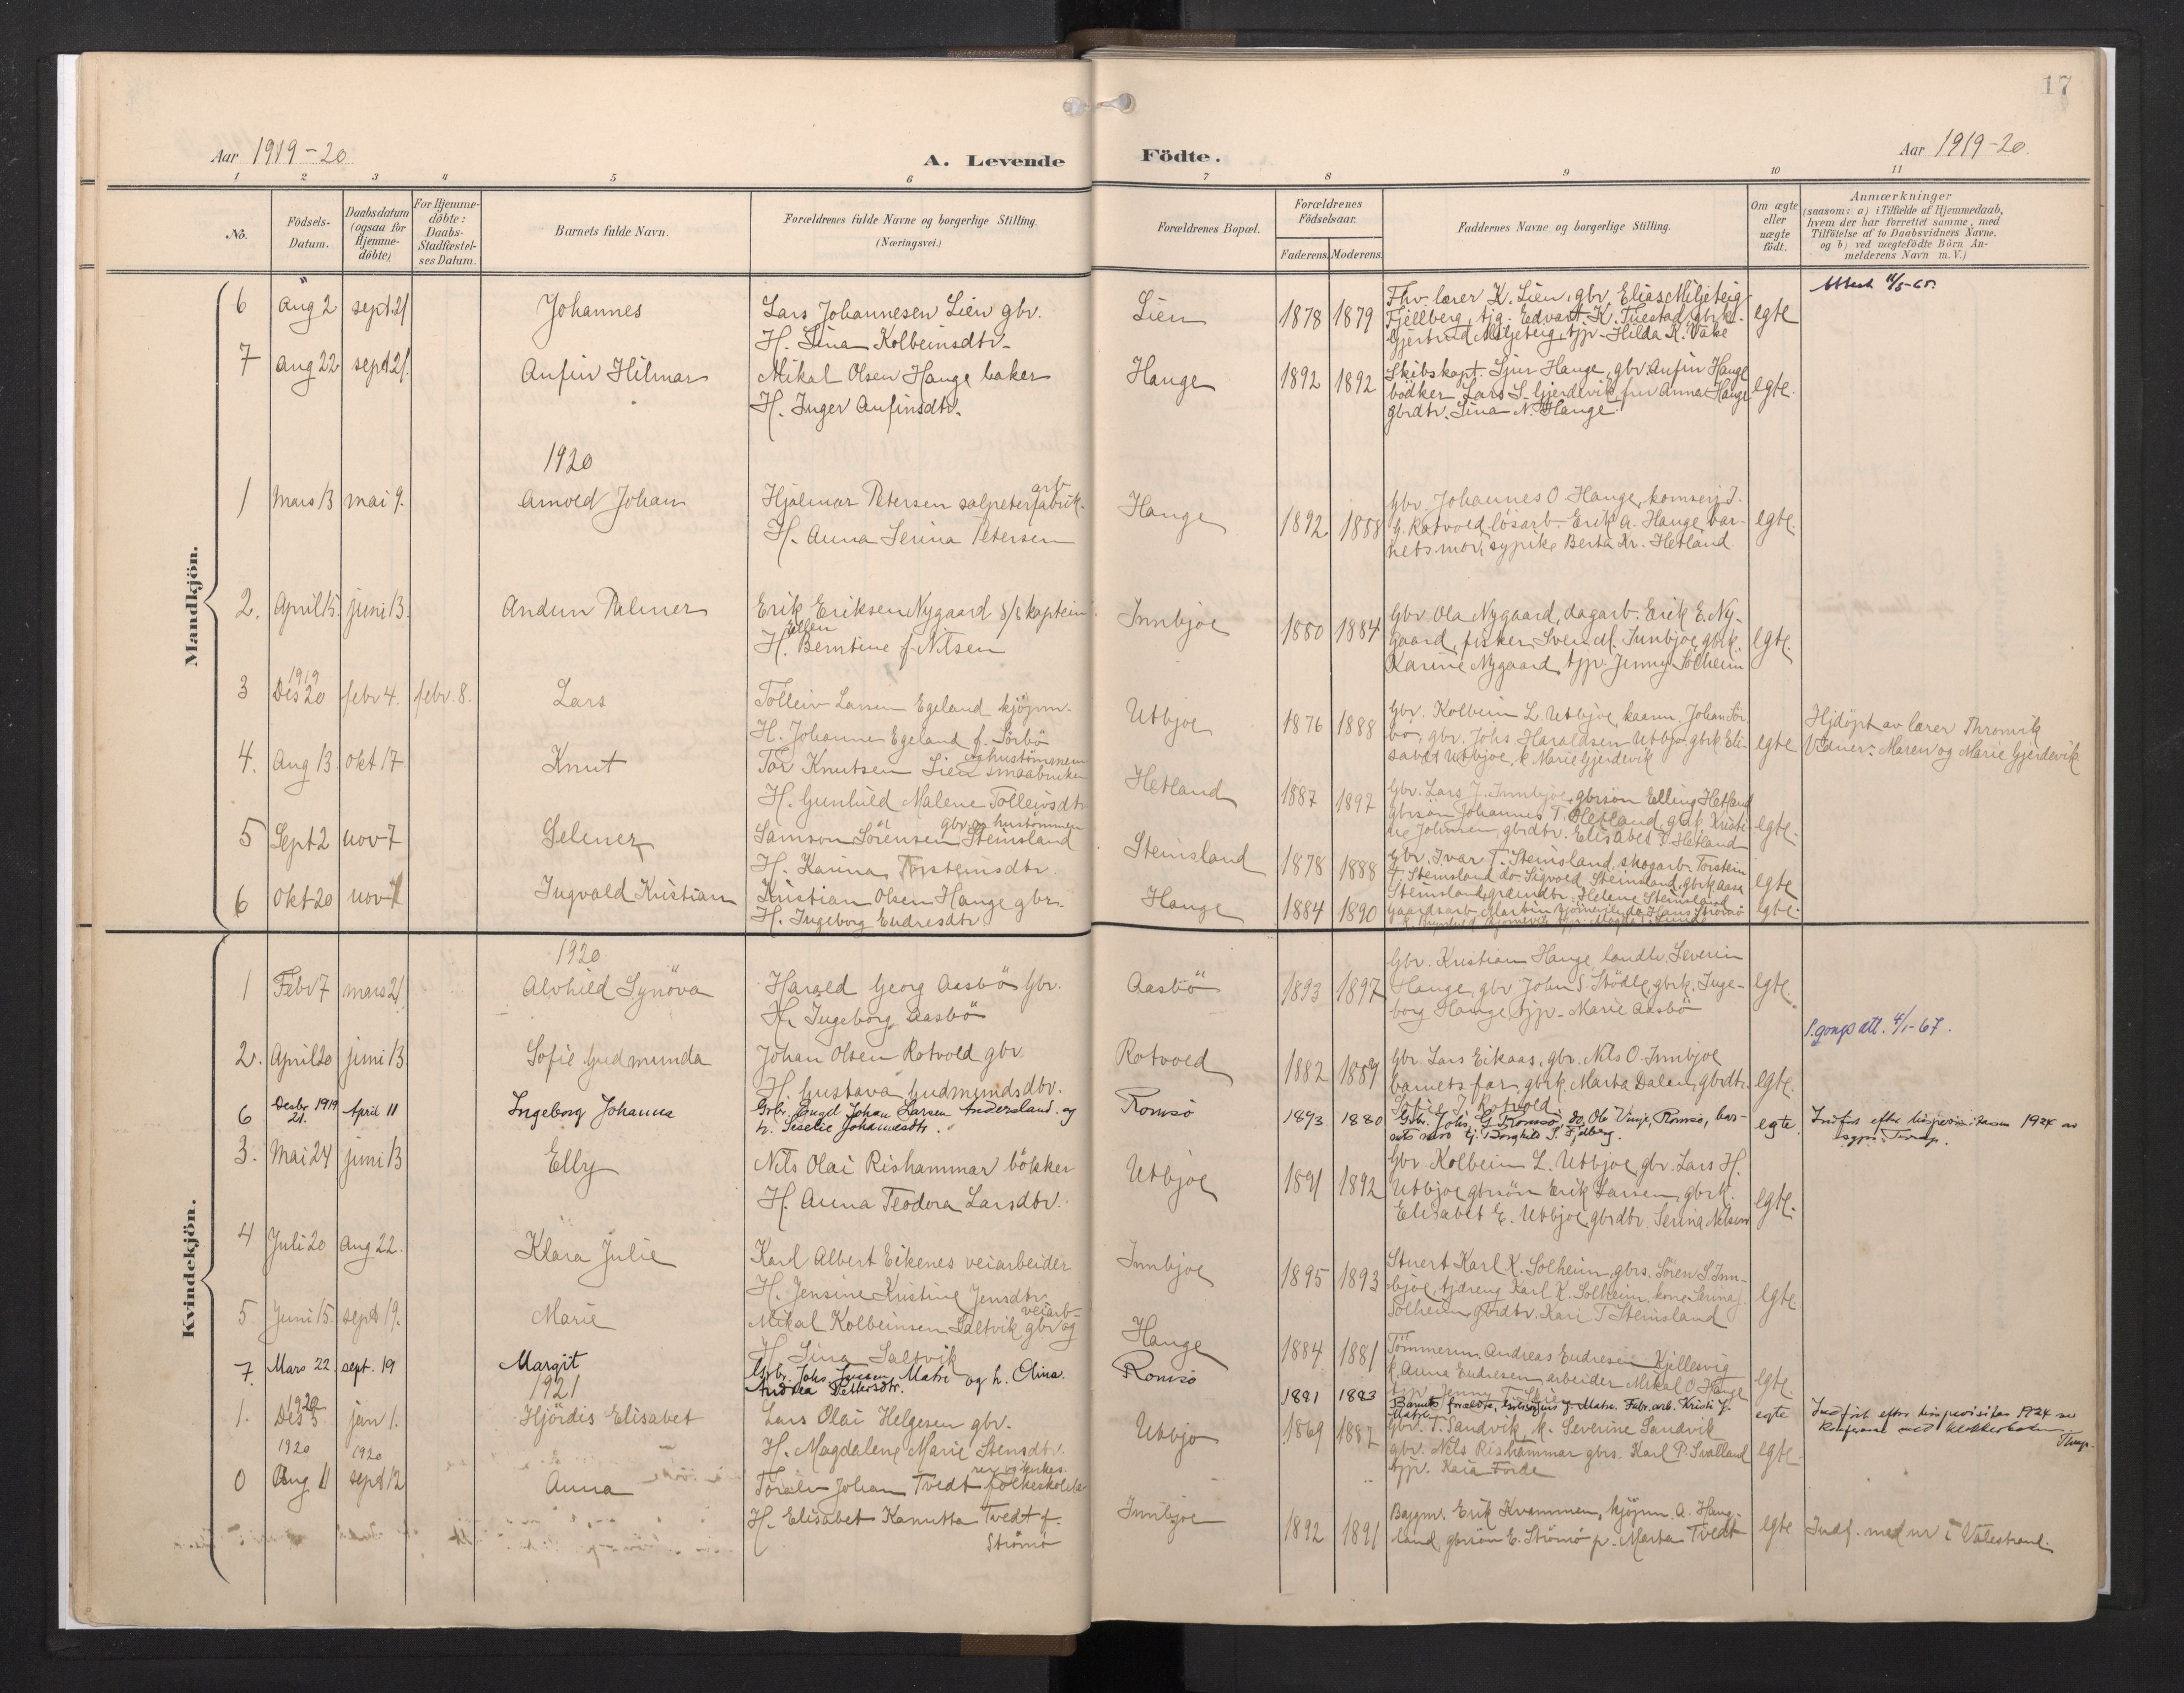 17
Aar 1919-20
A. Levende Födte.
Aar 1919-20.
1 2 3 4 5 6 7 8 9 10 11
No.
Födsels-Datum.
Daabsdatum (ogsaa for Hjemme-döbte)
For Hjemme-döbte: Daabs-Stadfæstel-ses Datum.
Barnets fulde Navn.
Forældrenes fulde Navne og borgerlige Stilling.
(Næringsvei.)
Forældrenes Bopæl.
Forældrenes Födselsaar.
Faderens. Moderens.
Faddernes Navne og borgerlige Stilling.
Om ægte eller uægte födt.
Anmærkninger
(saasom: a) i Tilfælde af Hjemmedaab,
hvem der har forrettet samme, med
Tilföielse af to Daabsvidners Navne.
og b) ved uægtefödte Börn An-
melderens Navn m. V.)
Mandkjön.
6 Aug 2 sept. 21 Johannes Lars Johannesen Lien gbr. Lien 1878 1879 Fhv. lærer K. Lien, gbr. Elias Miljeteig egte
H. Sina Kolbeinsdtr. Fjellberg, tjg. Edvart K. Tuestad, gbrk.
Gjertrud Miljeteig, tjp. Hilda K. Vake
7 Aug 22 sept 21. Anfin Hilmar Mikal Olsen Hauge baker Hauge 1892 1892 Skibskapt. Sjur Hauge, gbr. Anfin Hauge egte.
H. Inger Anfinsdtr. bödker Lars S. Gjerdevik, fru Anna Hauge
gbrdtr. Sina N. Hauge
1920
1 Mars 13 mai 9. Arnold Johan Hjalmar Petersen salpeterfabrik. arb Hauge 1892 1888 Gbr. Johannes O Hauge, egte.
H. Anna Serina Petersen G. Rotvold lösarb. Erik A. Hauge, bar-
nets mor, sypike Berta Kr. Hetland
2. April 15. juni 13. Andun Palmer Erik Eriksen Nygaard s/s kaptein Innbjoe 1880 1884 Gbr Ola Nygaard, dagarb. Erik E. Ny- egte.
H. Ellen Berntine f. Nilsen gaard, fisker Svend Innbjoe, gbrk.
Karine Nygaard, tjp. Jenny Solheim
3 1919 Des 20 febr 4. febr. 8. Lars Tolleiv Larsen Egeland kjöpm. Utbjoe 1876 1888 Gbr. Kolbein L. Utbjoe, kaarm. Johan Sör- egte Hjdöpt av lærer Thronvik
H. Johanne Egeland f. Sörbö bö, gbr. Johs Haraldsen Utbjo, gbrk. Eli- Vidner: Maren og Marie Gjerdevik
sabet Utbjoe, k Marie Gjerdevik
4. Aug 13. okt 17 Knut Tor Knutsen Lien smaabruker og hustömmerm. Hetland 1887 1897 Gbr. Lars J. Innbjoe, gbrsön Elling Hetland egte.
H. Gunhild Malene Tolleivsdtr. gbrsön Johannes T. Hetland, gbrk. Kristi-
ne Johnsen, gbrdtr. Elisabet T. Hetland
5 Sept 2 nov 7 Selmer Samson Sörensen Steinsland gbr og hustömmer Steinsland 1878 1888 Gbr. Ivar T. Steinsland, skogarb. Torstein egte
H. Karina Torsteinsdtr. T. Steinsland do Sigvald Steinsland, gbrk Aasa
Steinsland, Helene Steinsland
6 Okt 20 nov Ingvald Kristian Kristian Olsen Hauge gbr. Hauge 1884 1890 Gaardsarb. egte.
H. Ingeborg Endresdtr.
Kvindekjön.
1920
1 Febr 7 mars 21 Alvhild Synöva Harald Georg Aasbö Gbr. Aasbö 1893 1897 Gbr. Kristian Hauge, landhv. Severin egte.
H. Ingeborg Aasbö Hauge, gbr John S. Stödle, gbrk. Inge-
borg Hauge, tjp. Marie Aasbö
1. gongs att. 4/1-67.
2. April 20 juni 13. Sofie Gudmunda Johan Olsen Rotvold gbr. Rotvold 1882 1889 Gbr. Lars Eikaas, gbr. Nils O. Innbjoe egte.
H. Gustava Gudmundsdtr. barnets far, gbrk. Marta Dalen, gbrdtr.
Sofie J. Rotvold
6 Desbr 1919 21. April 11 Ingeborg Johanna Gbr. Engel Johan Larsen Andersland. og Romsö 1893 1880 Gbr. Johs. G. Romsö, do. Ole Vinje, Romsö, bar- egte. Indfört efter bispevisitasen 1924 av
h. Seselie Johannesdtr. nets mor tj. Borghild S. Fjelberg.
3. Mai 24 juni 13 Elly Nils Olai Rishammar bökker Utbjoe 1891 1892 Gbr. Kolbein L. Utbjoe, gbr. Lars H. egte.
H. Anna Teodora Larsdtr. Utbjoe, gbrsön Erik Larsen, gbrk.
Elisabet E. Utbjoe, gbrdtr. Serina Nilsen
4 Juli 20 Aug 22. Klara Julie Karl Albert Eikenes veiarbeider Innbjoe 1895 1893 Stuert Karl K. Solheim, gbrs. Sören S. Inn- egte
H. Jensine Kristine Jensdtr. bjoe, tjdreng Karl K. Solheim, kone Serine J.
Solheim, gbrdtr. Kari T Steinsland
5. Juni 15. sept 19. Marie Mikal Kolbeinsen Saltvik gbr og veiarb. Hauge 1884 1881 Tömmerm. Andreas Endresen Kjillesvig egte.
H. Sina Saltvik k. Anna Endresen, arbeider Mikal O. Hauge
7. Mars 22. sept. 19 Margit Gbr. Johs. Jensen Matre og h. Elina Romsö 1881 1883 Barnets forældre, egte Indfört efter bispevisitas 1924 av
Andrea Pettersdtr. Matre. Konferanse med klokkerboken
1921
1. 1920 Des 5 jan 1. Hjördis Elisabet Lars Olai Helgesen gbr. Utbjo 1869 1887 Gbr. T. Sandvik, k. Severine Sandvik egte
H. Magdalene Marie Stensdtr. gbr. Nils Rishammar gbrs. Karl P. Svolland
tjp. Kaia Förde
0 1920 Aug 11 1920 sept 12 Anna Toralv Johan Tvedt folkeskolelæ Innbjoe 1892 1891 Bygm. Erik Kvammen, kjöpm. A. Haug- egte Indf. med nr i Valestrand.
H. Elisabet Kanutta Tvedt f. land, gbrsön E. Strömö p. Marta Tvedt
Strömö